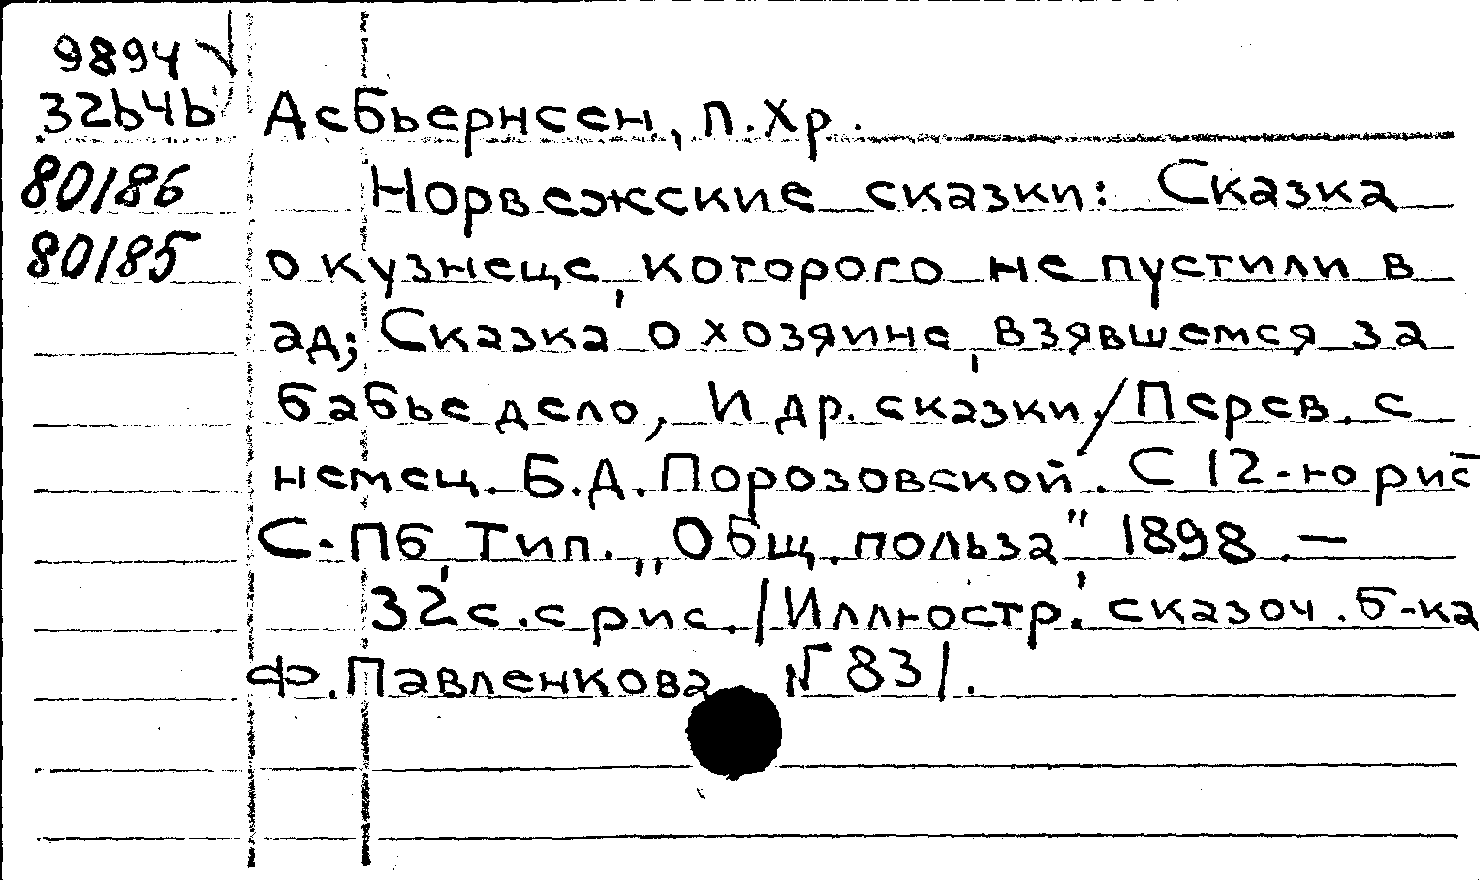 9894
32646 Асбьернсен, П. Хр.
80186 Норвежские сказки: Сказка
80185 о кузнеце, которого не пустили в
ад; Сказка о хозяине, взявшемся за
бабье дело, И др. сказки./Перев. с
немец. Б.Д. Порозовской. С 12-ю рис
С-Пб, Тип. „Общ. польза" 1898. —
32 с. с рис. /Иллюстр. сказоч. б-ка
Ф. Павленкова № 83/.